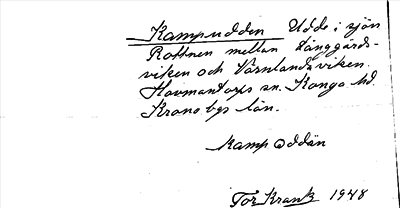 Kampudden Udde i sjön
Rottnen mellan Långgårds-
viken och Värnlandsviken.
Hovmantorps sn. Konga hd.
Kronobgs län.
kamp oddän
Tor Krank 1948